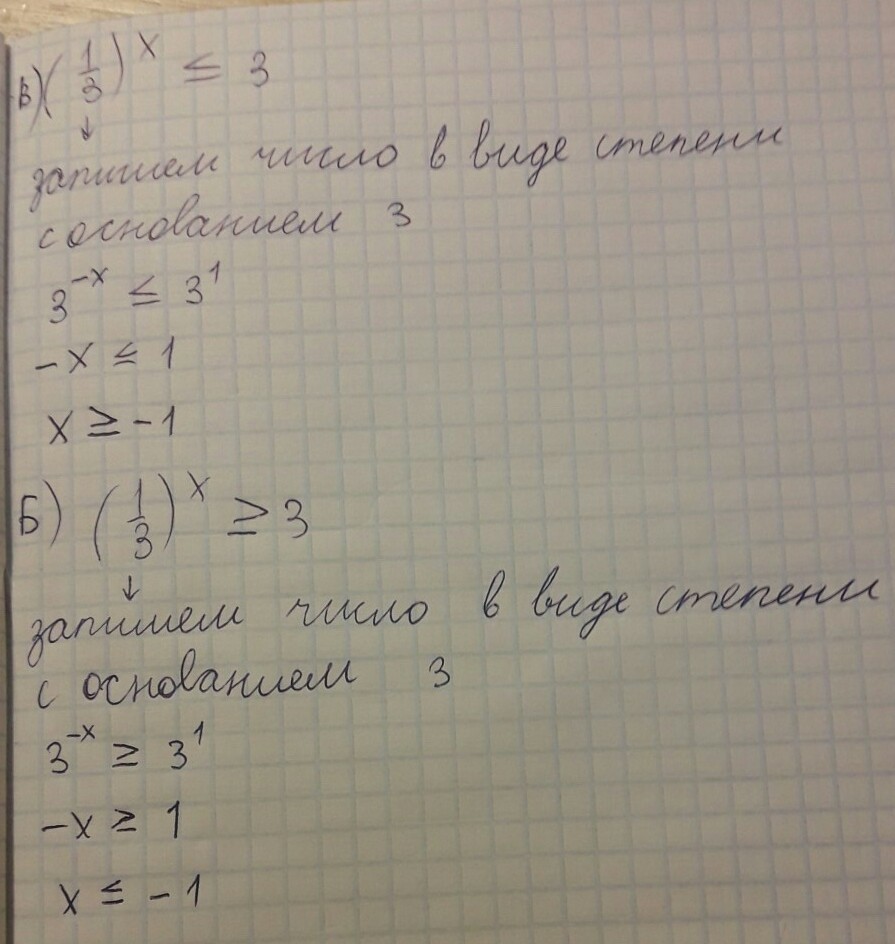 В) (1/3)^x ≤ 3
↓
запишем число в виде степени
с основанием 3
3^-x ≤ 3^1
-x ≤ 1
x ≥ -1
Б) (1/3)^x ≥ 3
↓
запишем число в виде степени
с основанием 3
3^-x ≥ 3^1
-x ≥ 1
x ≤ -1